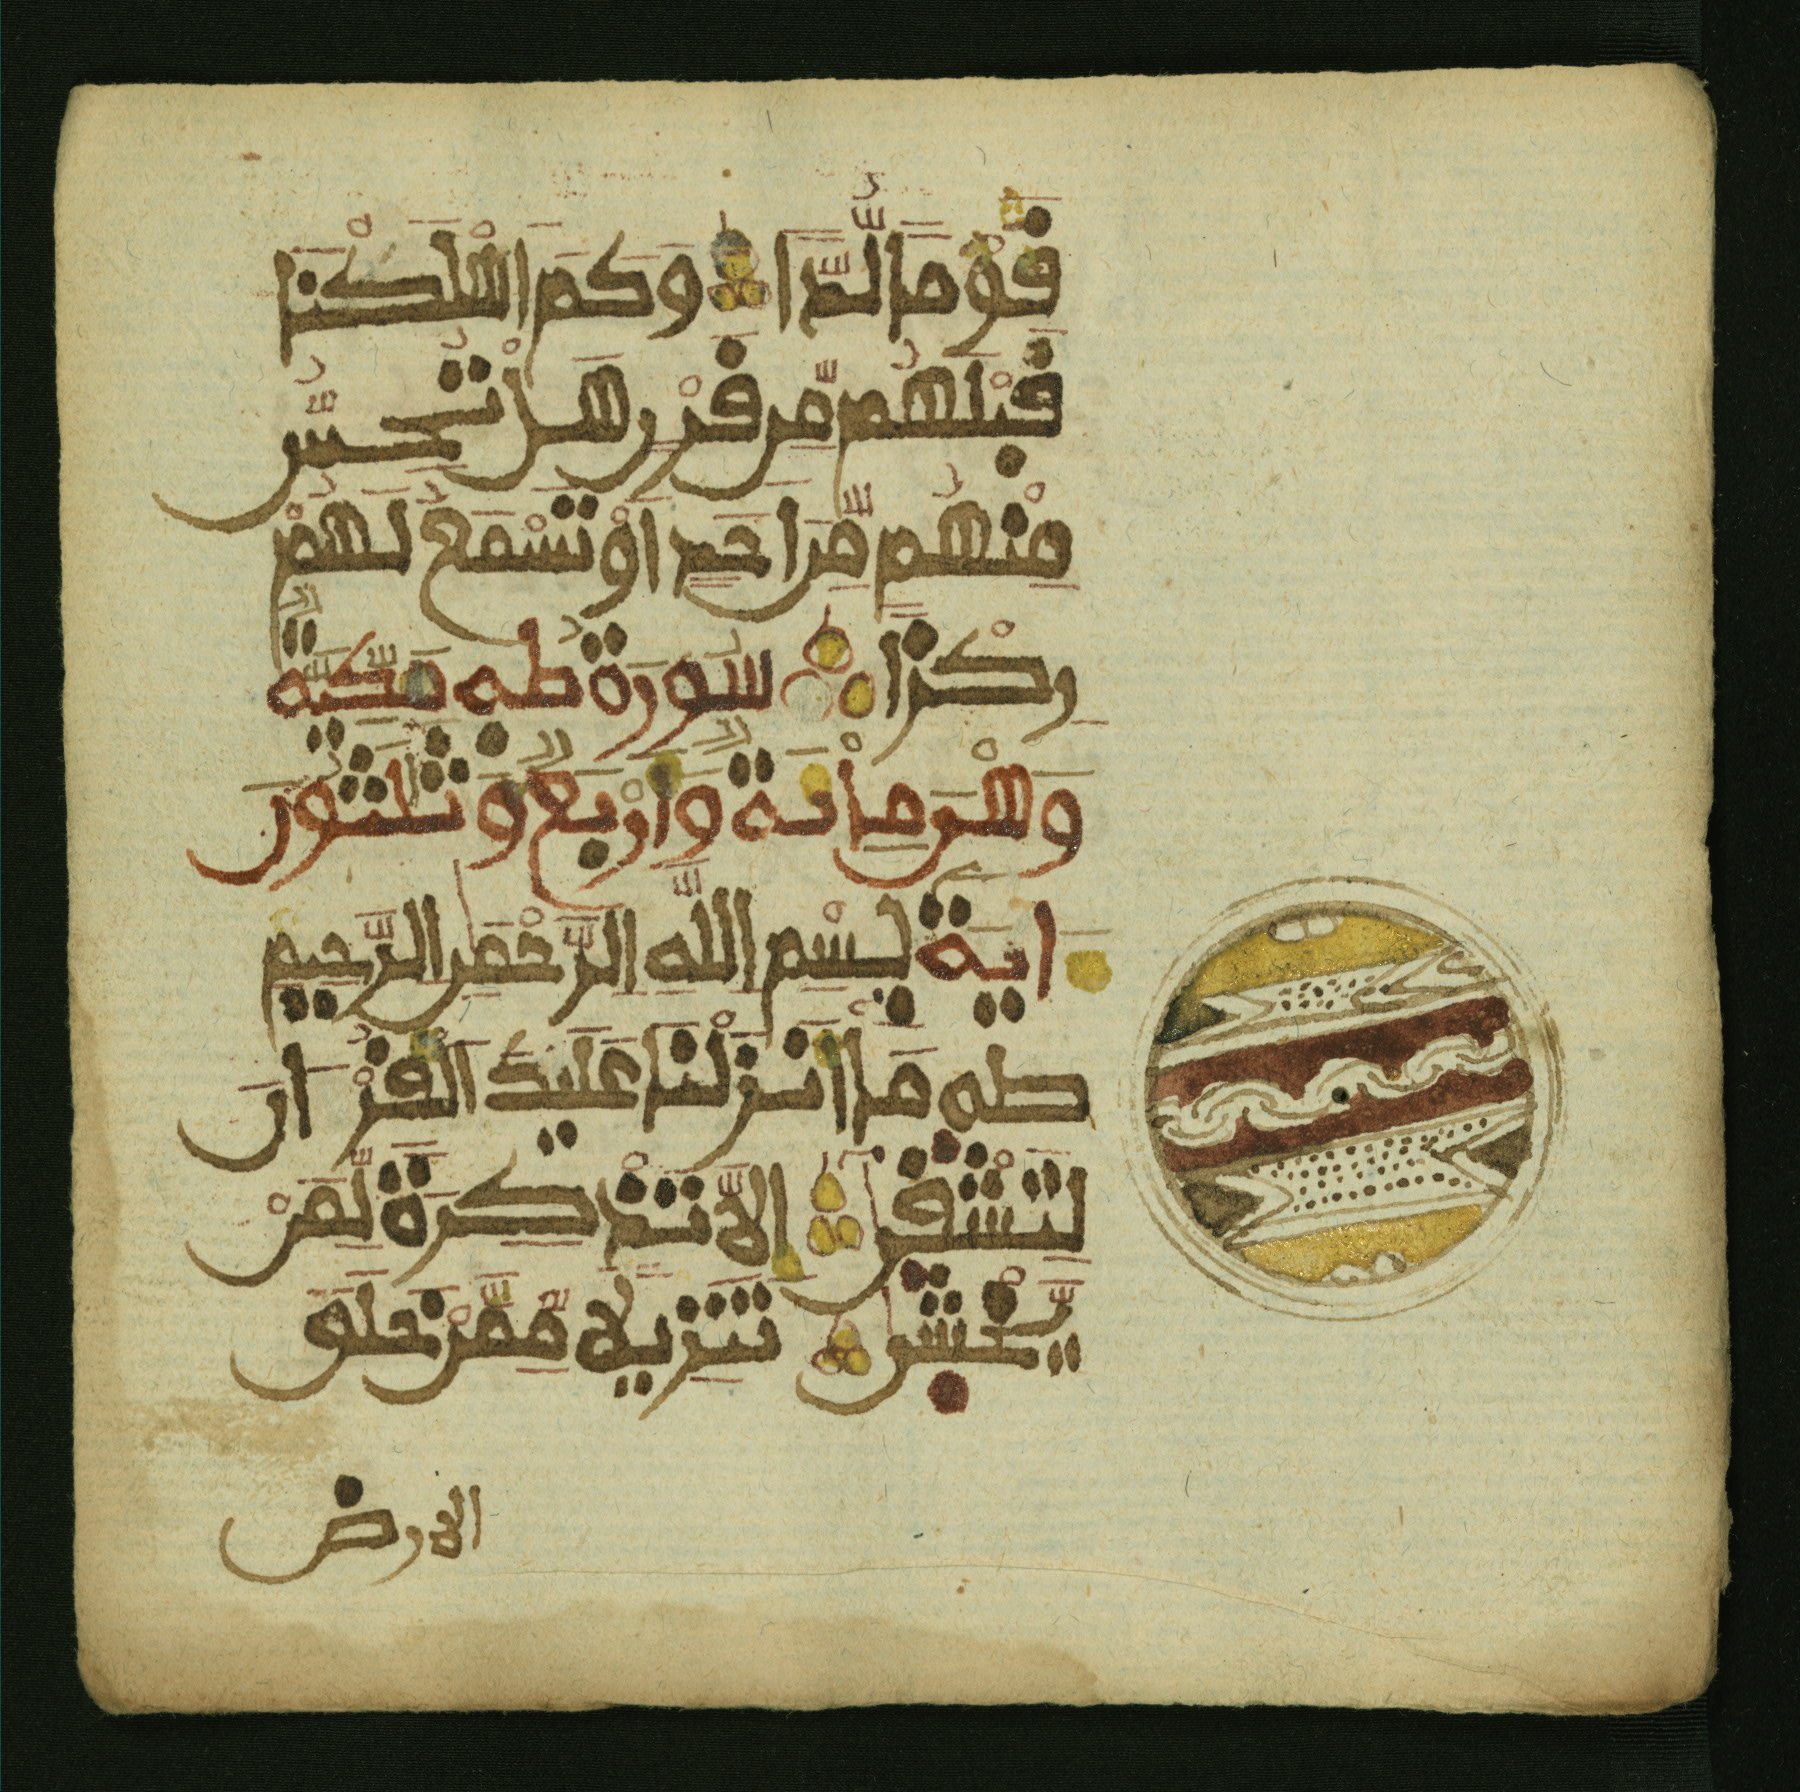 قَوْمًا لُّدًّا وَكَمَ اَهْلَكْنَا
قَبْلَهُم مِّن قَرْنٍ هَلْ تُحِسُّ
مِنْهُم مِّنَ اَحَدٍ اَوْ تَسْمَعُ لَهُمْ
رِكْزًا سُورَةُ طه مَكِّيَّةٌ
وَهْىَ مِائَةٌ وَأَرْبَعٌ وَثَلَثُونَ
ايَةً بِسْمِ اللَّهِ الرَّحْمَنِ الرَّحِيمِ
طه مَا أَنزَلْنَا عَلَيْكَ الْقُرْءَانَ
لِتَشْقَى إِلَّا تَذْكِرَةً لِّمَنْ
يَّخْشَى تَنزِيلًا مِّمَّنْ خَلَقَ
الارض